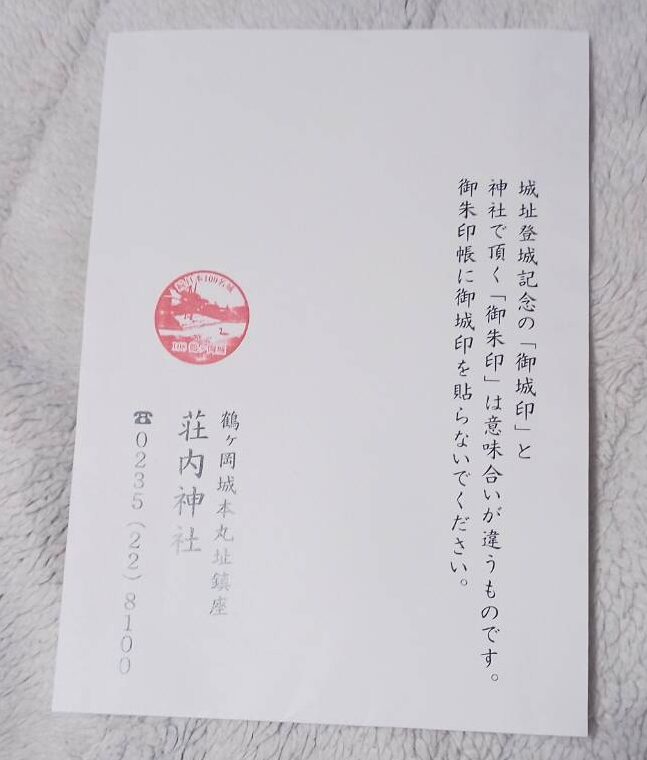 城址登城記念の「御城印」と
神社で頂く「御朱印」は意味合いが違うものです。
御朱印帳に御城印を貼らないでください。
日本100名城
108 鶴ヶ岡城
鶴ヶ岡城本丸址鎮座
荘内神社
☎0235(22)8100